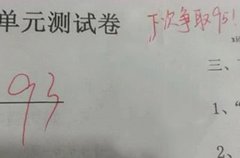 单元测试卷
下次争取95!
93
三、
1、"
2、